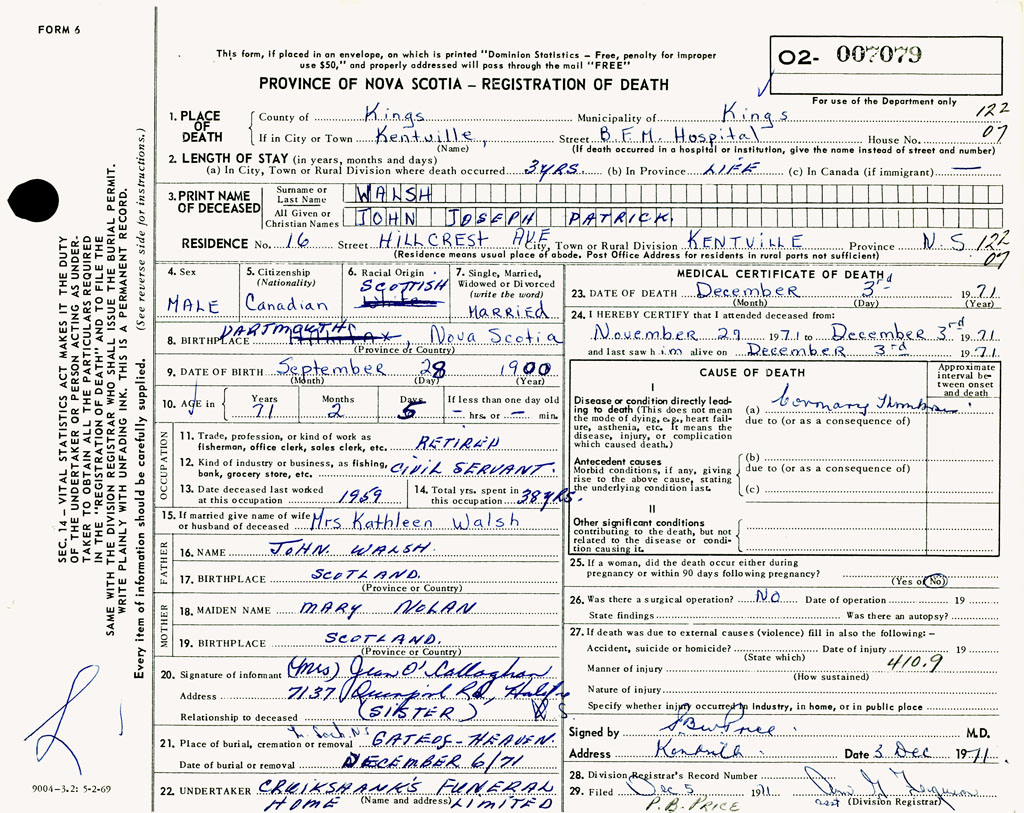 FORM 6
This form, if placed in an envelope, on which is printed "Dominion Statistics – Free, penalty for improper
use $50," and properly addressed will pass through the mail "FREE"
O2- 007079
PROVINCE OF NOVA SCOTIA – REGISTRATION OF DEATH
For use of the Department only
1. PLACE OF DEATH
County of Kings Municipality of Kings 122
If in City or Town Kentville, Street B.F.M. Hospital House No. 07
(Name) (If death occurred in a hospital or institution, give the name instead of street and number)
2. LENGTH OF STAY (in years, months and days)
(a) In City, Town or Rural Division where death occurred 3 YRS. (b) In Province LIFE (c) In Canada (if immigrant) —
3. PRINT NAME OF DECEASED
Surname or Last Name WALSH
All Given or Christian Names JOHN JOSEPH PATRICK
RESIDENCE No. 16 Street HILLCREST AVE City, Town or Rural Division KENTVILLE Province N.S 122
(Residence means usual place of abode. Post Office Address for residents in rural parts not sufficient) 07
4. Sex MALE
5. Citizenship (Nationality) Canadian
6. Racial Origin SCOTTISH White
7. Single, Married, Widowed or Divorced (write the word) MARRIED
8. BIRTHPLACE DARTMOUTH, Nova Scotia
(Province or Country)
9. DATE OF BIRTH September 28 1900
(Month) (Day) (Year)
10. AGE in Years 71 Months 2 Days 5 If less than one day old – hrs. or – min.
OCCUPATION
11. Trade, profession, or kind of work as
fisherman, office clerk, sales clerk, etc. RETIRED
12. Kind of industry or business, as fishing,
bank, grocery store, etc. CIVIL SERVANT.
13. Date deceased last worked
at this occupation 1959
14. Total yrs. spent in
this occupation 38 YRS.
15. If married give name of wife
or husband of deceased Mrs Kathleen Walsh
FATHER
16. NAME JOHN WALSH
17. BIRTHPLACE SCOTLAND.
(Province or Country)
MOTHER
18. MAIDEN NAME MARY NOLAN
19. BIRTHPLACE SCOTLAND.
(Province or Country)
20. Signature of informant (Mrs) Jean O'Callaghan
Address 7137 Quinpool Rd, Halifx
N S.
Relationship to deceased (SISTER)
21. Place of burial, cremation or removal GATE OF HEAVEN.
Date of burial or removal DECEMBER 6/71
22. UNDERTAKER CRUIKSHANK'S FUNERAL
HOME (Name and address) LIMITED
MEDICAL CERTIFICATE OF DEATH
23. DATE OF DEATH December 3rd 1971
(Month) (Day) (Year)
24. I HEREBY CERTIFY that I attended deceased from:
November 29 1971 to December 3rd 1971
and last saw him alive on December 3rd 1971
CAUSE OF DEATH
Approximate interval between onset and death
I
Disease or condition directly leading to death (This does not mean
the mode of dying, e.g., heart failure, asthenia, etc. It means the
disease, injury, or complication
which caused death.)
(a) Coronary
due to (or as a consequence of)
Antecedent causes
Morbid conditions, if any, giving
rise to the above cause, stating
the underlying condition last.
(b)
due to (or as a consequence of)
(c)
II
Other significant conditions
contributing to the death, but not
related to the disease or condition causing it.
25. If a woman, did the death occur either during
pregnancy or within 90 days following pregnancy?
(Yes or No)
26. Was there a surgical operation? NO Date of operation 19
State findings Was there an autopsy?
27. If death was due to external causes (violence) fill in also the following: –
Accident, suicide or homicide? Date of injury 19
(State which) 410.9
Manner of injury
(How sustained)
Nature of injury
Specify whether injury occurred in industry, in home, or in public place
Signed by Price M.D.
Address Kentville Date 3 Dec 1971
28. Division Registrar's Record Number
29. Filed Dec 5 1971
(Division Registrar)
P.B. PRICE
SEC. 14 – VITAL STATISTICS ACT MAKES IT THE DUTY
OF THE UNDERTAKER OR PERSON ACTING AS UNDER-
TAKER TO OBTAIN ALL THE PARTICULARS REQUIRED
IN THE "REGISTRATION OF DEATH" AND TO FILE THE
SAME WITH THE DIVISION REGISTRAR WHO SHALL ISSUE THE BURIAL PERMIT.
WRITE PLAINLY WITH UNFADING INK. THIS IS A PERMANENT RECORD.
Every item of information should be carefully supplied. (See reverse side for instructions.)
9004–3.2: 5-2-69